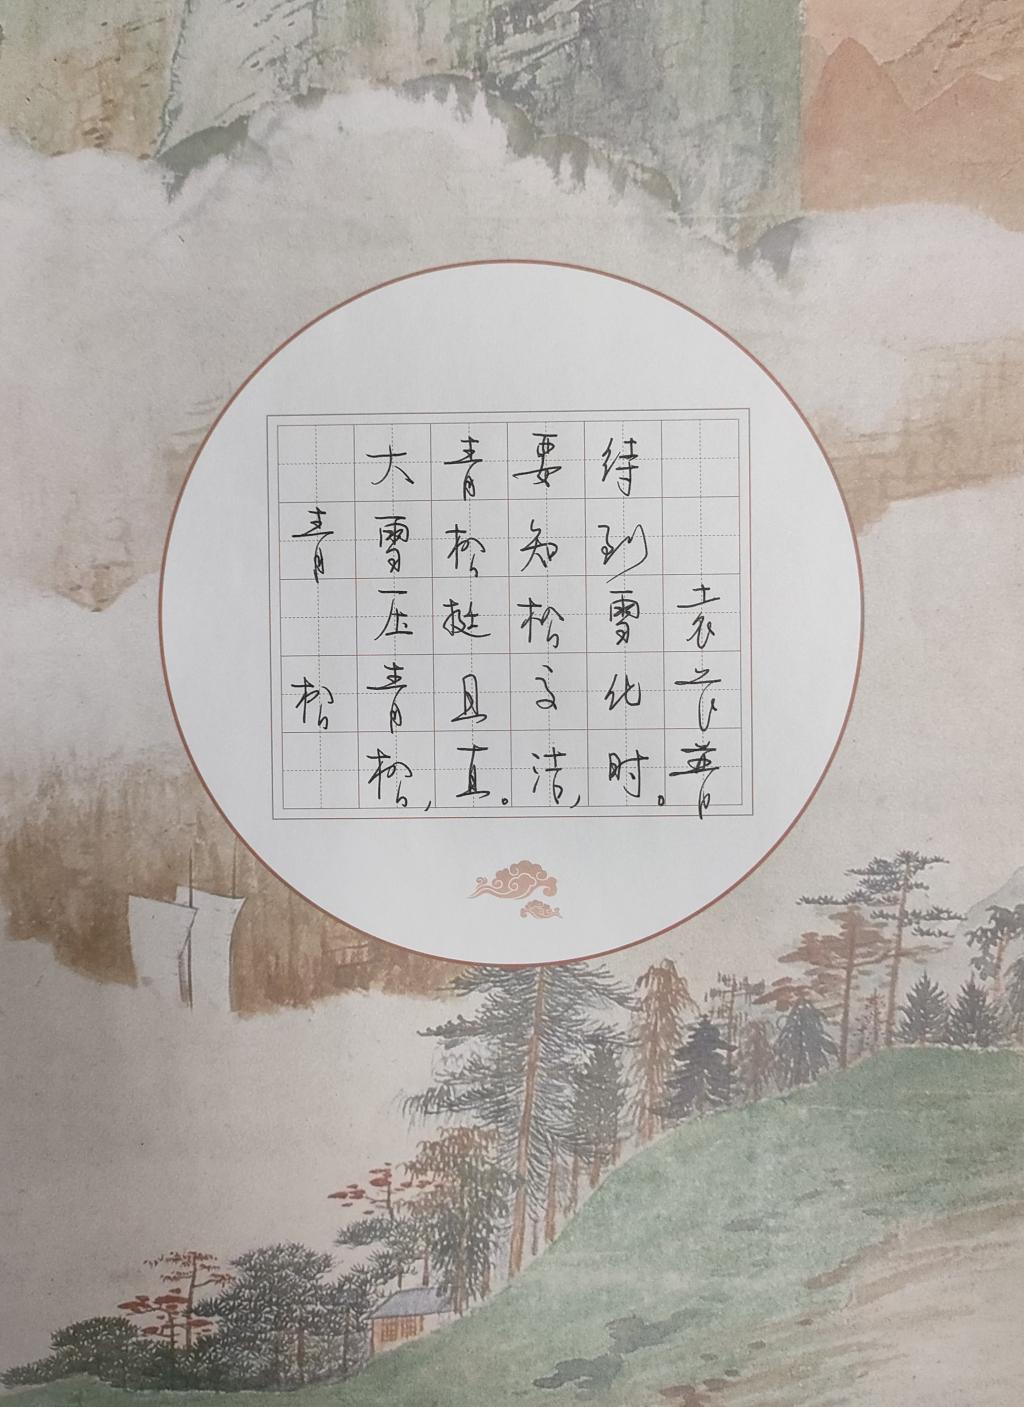 青松
大雪压青松,
青松挺且直。
要知松高洁,
待到雪化时。
袁菁